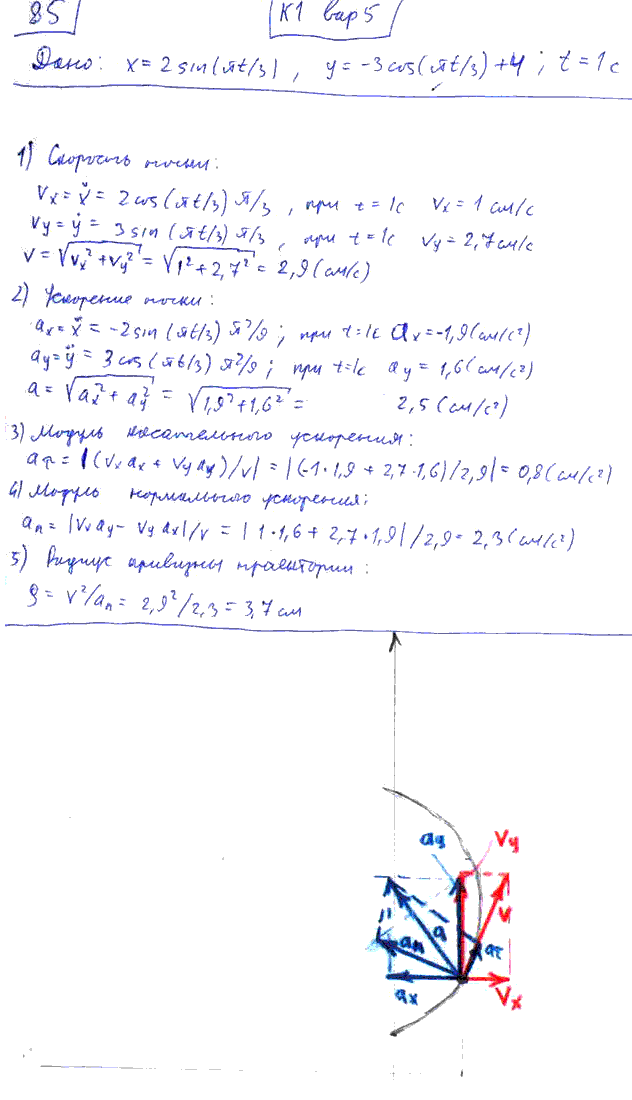 85
К1 вар 5
Дано: x = 2 sin(πt/3), y = -3cos(πt/3)+4; t = 1с
1) Скорость точки:
Vx = ẍ = 2cos(πt/3) π/3, при t = 1с Vx = 1 см/с
Vy = ẏ = 3 sin(πt/3) π/3, при t = 1с Vy = 2,7 см/с
V = √(Vx² + Vy²) = √(1² + 2,7²) = 2,9 (см/с)
2) Ускорение точки:
ax = ẍ = -2sin(πt/3) π²/9; при t=1с ax = -1,9 (см/с²)
ay = ÿ = 3cos(πt/3) π²/9; при t=1с ay = 1,6 (см/с²)
a = √(ax² + ay²) = √(1,9² + 1,6²) = 2,5 (см/с²)
3) Модуль касательного ускорения:
aτ = |(Vx ax + Vy ay)/V| = |(-1·1,9 + 2,7·1,6)/2,9| = 0,8 (см/с²)
4) Модуль нормального ускорения;
an = |Vx ay - Vy ax|/v = |1·1,6 + 2,7·1,9|/2,9 = 2,3 (см/с²)
5) Радиус кривизны траектории:
ρ = V²/an = 2,9²/2,3 = 3,7 см
ay
Vy
V
a
an
aτ
ax
Vx